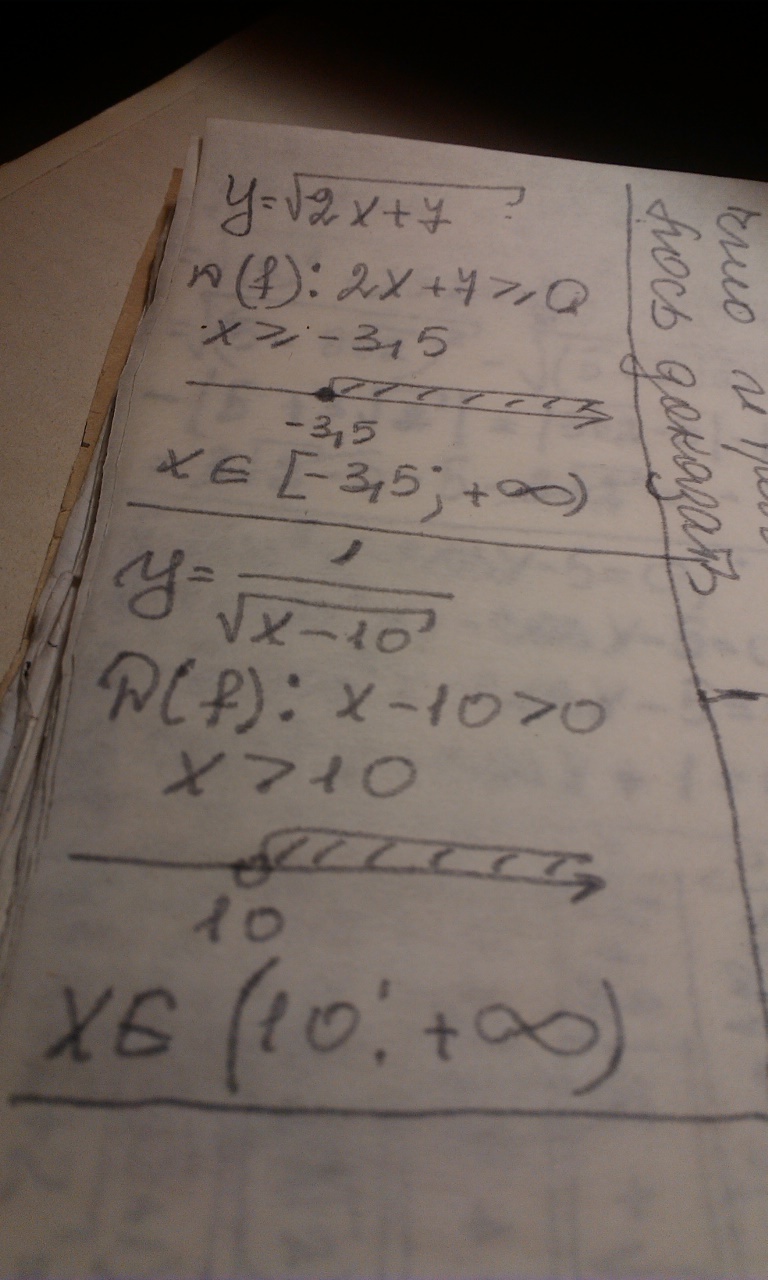 y=√2x+7
D(f): 2x+7≥0
x≥-3,5
-3,5
x∈[-3,5; +∞)
y=1/√x-10
D(f): x-10>0
x>10
10
x∈(10; +∞)
что и
лось доказать